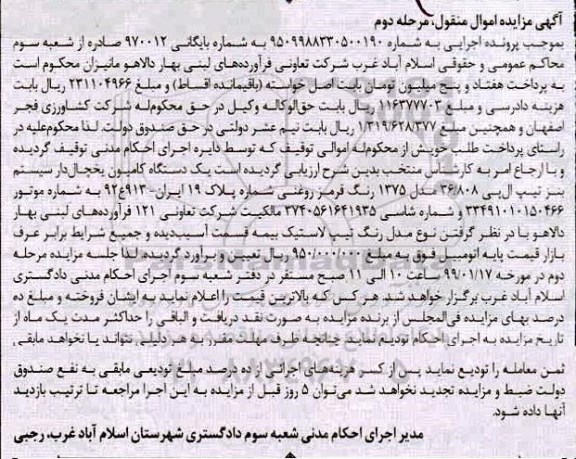 آگهی مزایده اموال منقول، مرحله دوم
بموجب پرونده اجرایی به شماره ۹۵۰۹۹۸۸۳۳۰۵۰۰۱۹۰ به شماره بایگانی ۹۷۰۰۱۲ صادره از شعبه سوم
محاکم عمومی و حقوقی اسلام آباد غرب شرکت تعاونی فرآورده‌های لبنی بهار دالاهو مانیزان محکوم است
به پرداخت هفتاد و پنج میلیون تومان بابت اصل خواسته (باقیمانده اقساط) و مبلغ ۲۳۱۱۰۴۹۶۶ ریال بابت
هزینه دادرسی و مبلغ ۱۱۶۳۷۷۷۰۳ ریال بابت حق‌الوکاله وکیل در حق محکوم‌له شرکت کشاورزی فجر
اصفهان و همچنین مبلغ ۱/۳۱۹/۶۲۸/۳۷۷ ریال بابت نیم عشر دولتی در حق صندوق دولت. لذا محکوم‌علیه در
راستای پرداخت طلب خویش از محکوم‌له اموالی توقیف که توسط دایره اجرای احکام مدنی توقیف گردیده
و با ارجاع امر به کارشناس منتخب بدین شرح ارزیابی گردیده است یک دستگاه کامیون یخچال‌دار سیستم
بنز تیپ ال‌پی ۳۶/۸۰۸ مدل ۱۳۷۵ رنگ قرمز روغنی شماره پلاک ۱۹ ایران-۹۱۳ع۹۲ به شماره موتور
۳۳۴۹۱۰۱۰۱۵۰۴۶۶ و شماره شاسی ۳۷۴۰۵۶۱۶۴۱۹۳۵ مالکیت شرکت تعاونی ۱۲۱ فرآورده‌های لبنی بهار
دالاهو با در نظر گرفتن نوع مدل رنگ تیپ لاستیک بیمه قسمت آسیب‌دیده و جمیع شرایط برابر عرف
بازار قیمت پایه اتومبیل فوق به مبلغ ۹۵۰/۰۰۰/۰۰۰ ریال تعیین و برآورد گردیده لذا جلسه مزایده مرحله
دوم در مورخه ۹۹/۰۱/۱۷ ساعت ۱۰ الی ۱۱ صبح مستقر در دفتر شعبه سوم اجرای احکام مدنی دادگستری
اسلام آباد غرب برگزار خواهد شد. هر کس که بالاترین قیمت را اعلام نماید به ایشان فروخته و مبلغ ده
درصد بهای مزایده فی‌المجلس از برنده مزایده به صورت نقد دریافت و الباقی را حداکثر مدت یک ماه از
تاریخ مزایده به اجرای احکام تودیع نماید. چنانچه ظرف مهلت مقرر به هر دلیلی نتواند یا نخواهد مابقی
ثمن معامله را تودیع نماید پس از کسر هزینه‌های اجرائی از ده درصد مبلغ تودیعی مابقی به نفع صندوق
دولت ضبط و مزایده تجدید نخواهد شد می‌توان ۵ روز قبل از مزایده به این اجرا مراجعه تا ترتیب بازدید
آنها داده شود.
مدیر اجرای احکام مدنی شعبه سوم دادگستری شهرستان اسلام آباد غرب، رجبی